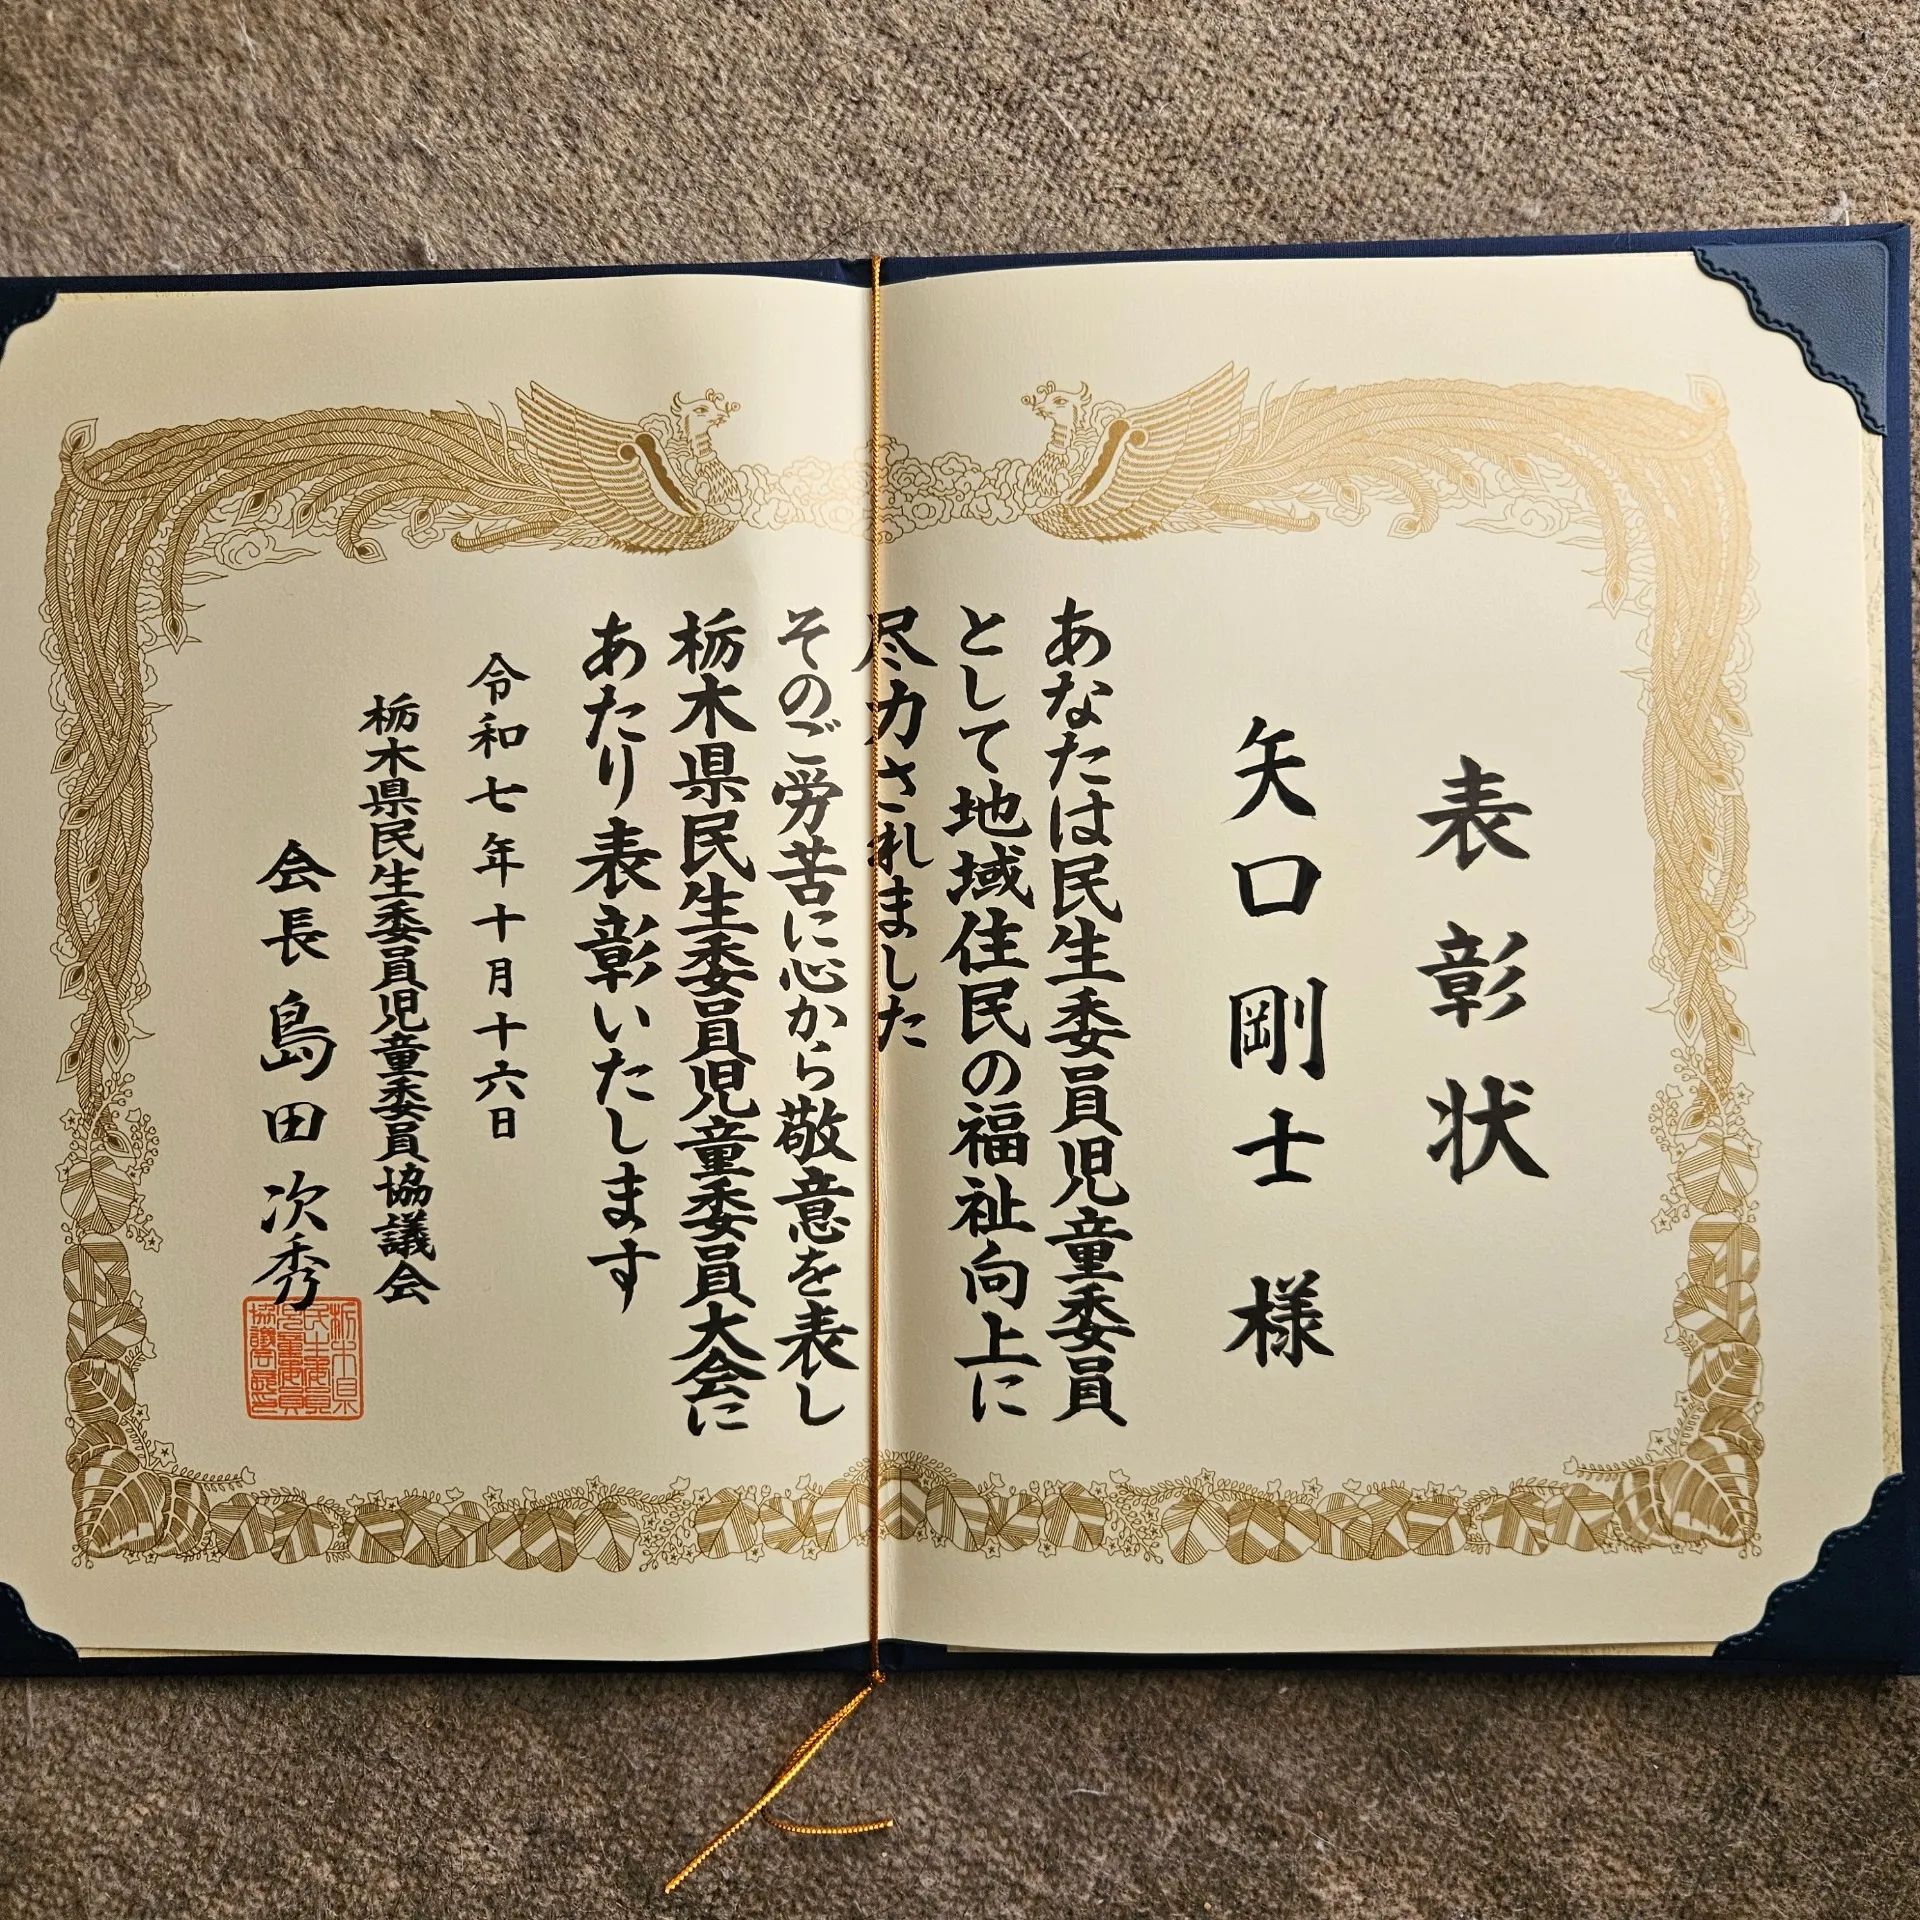 表彰状
矢口剛士様
あなたは民生委員児童委員
として地域住民の福祉向上に
尽力されました
そのご労苦に心から敬意を表し
栃木県民生委員児童委員大会に
あたり表彰いたします
令和七年十月十六日
栃木県民生委員児童委員協議会
会長島田次秀